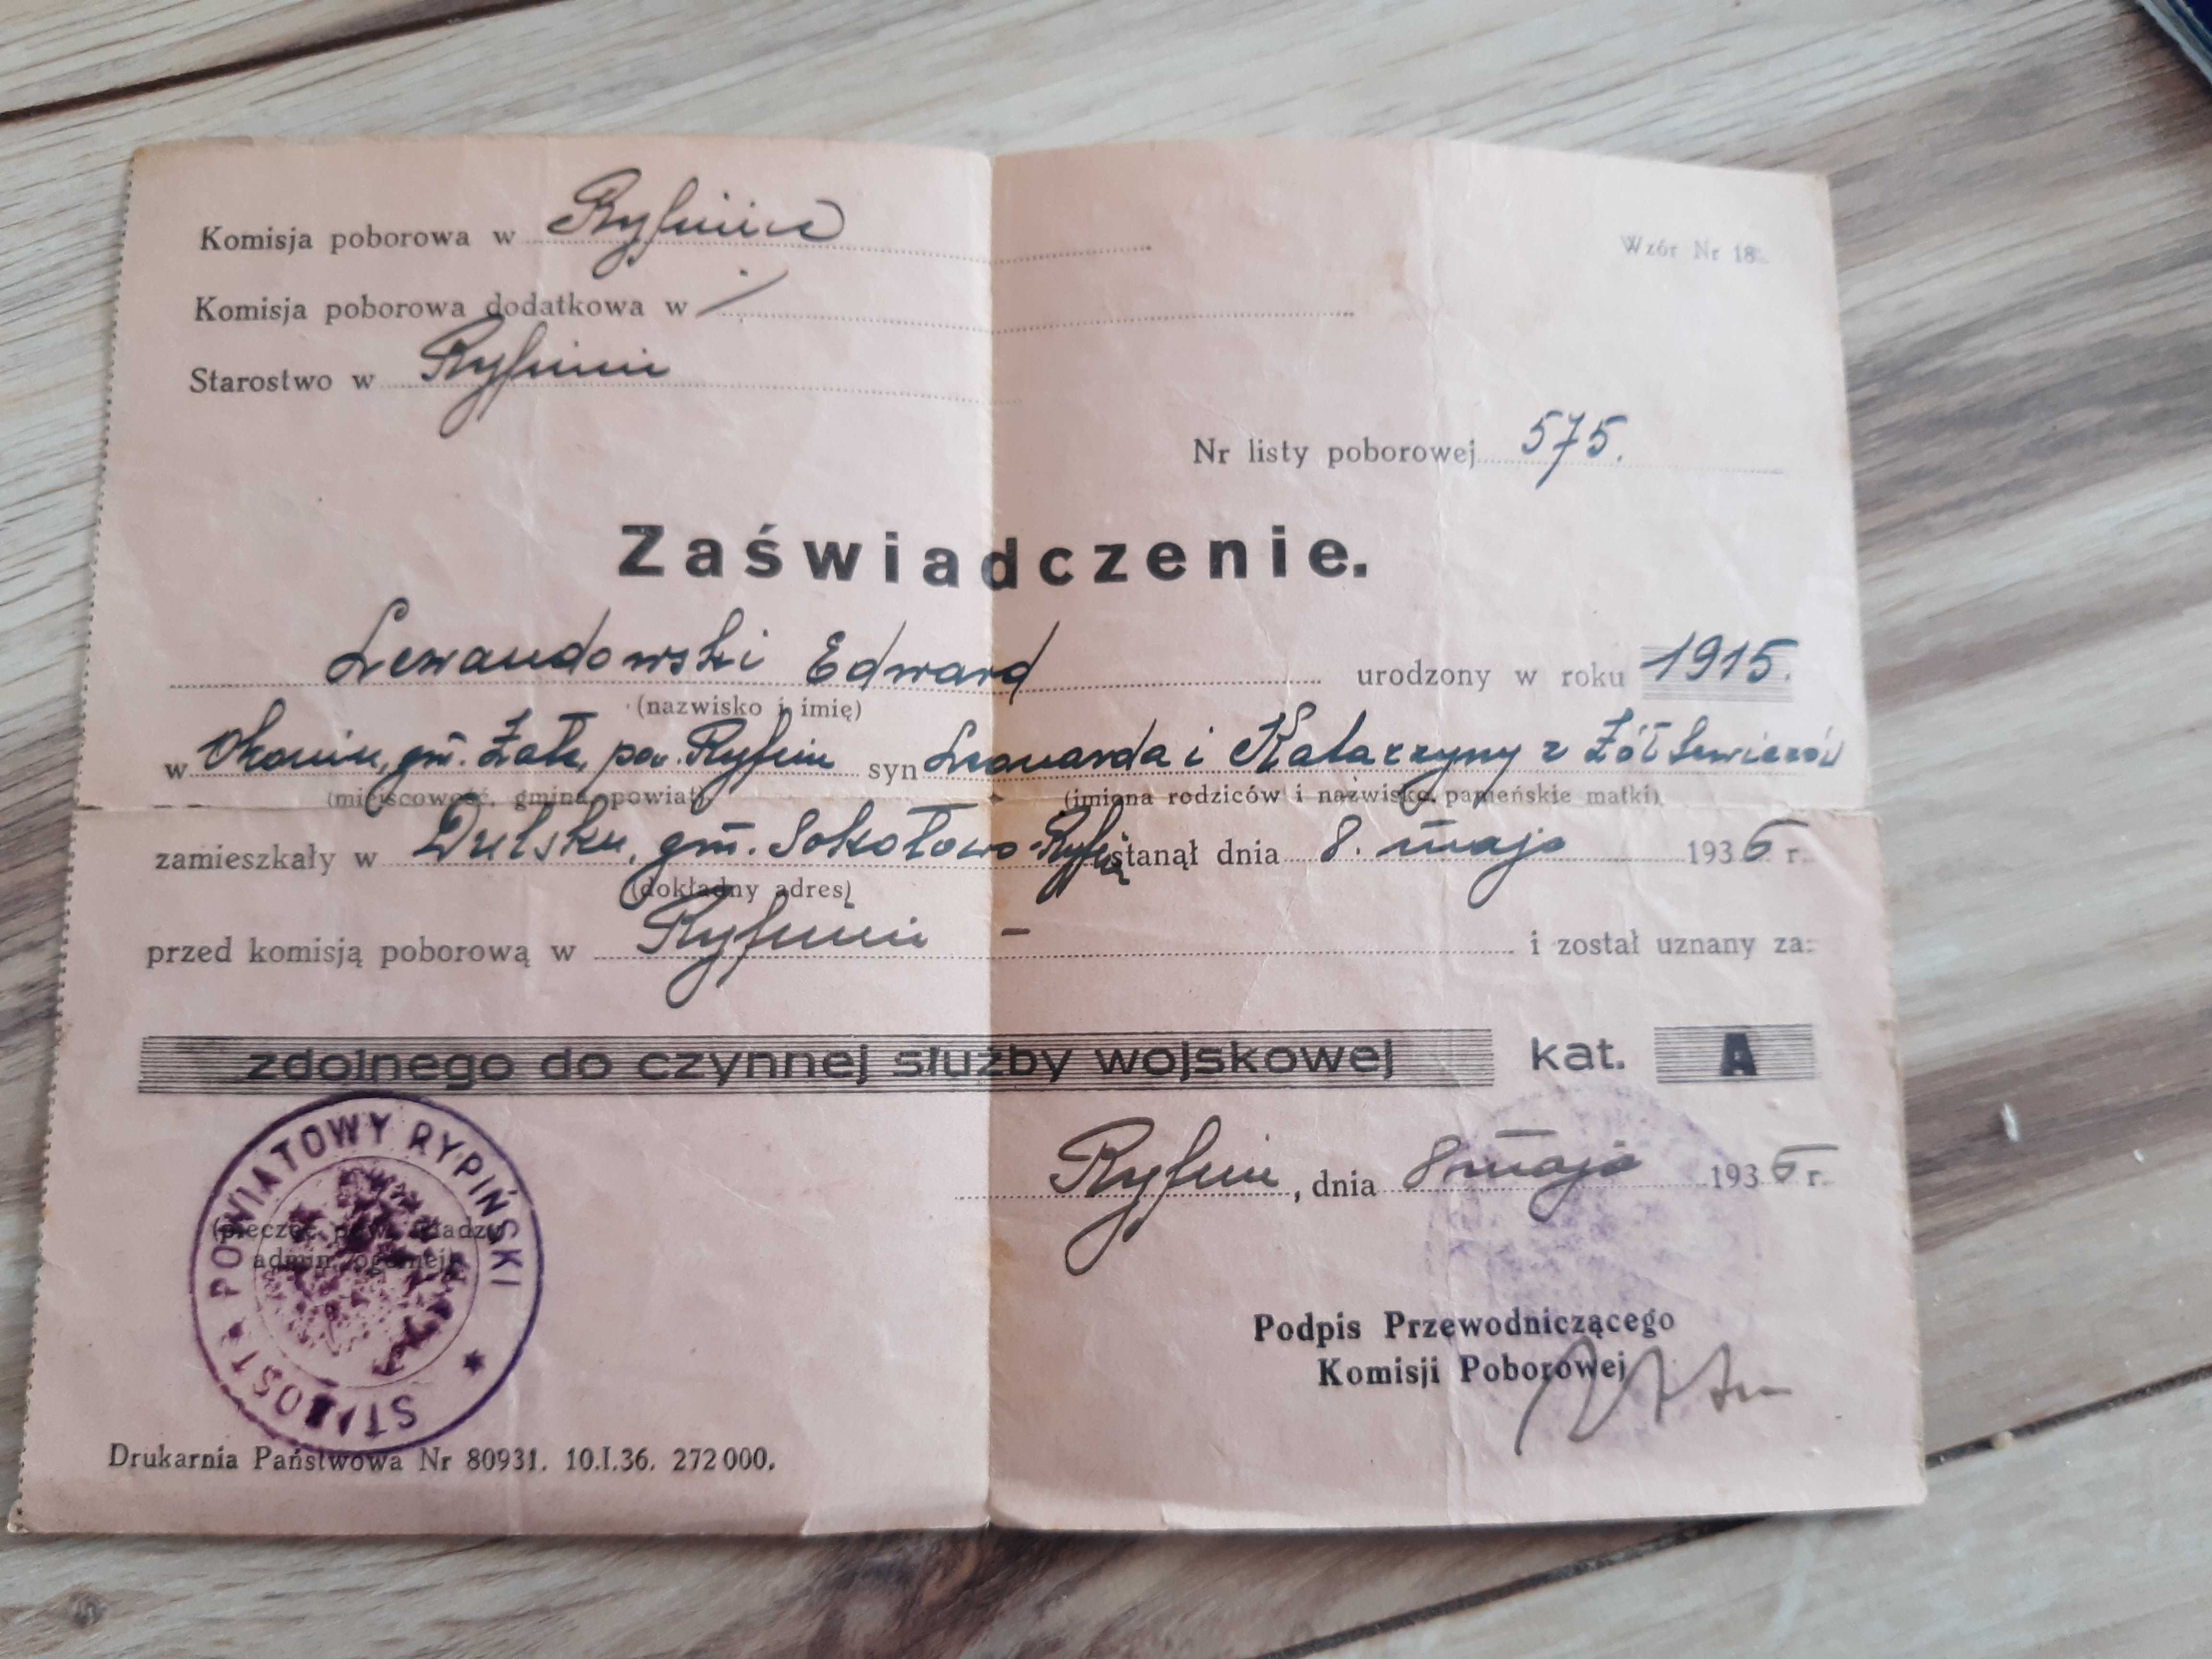 Komisja poborowa w Rypinie
Wzór Nr 18.
Komisja poborowa dodatkowa w /
Starostwo w Rypinie
Nr listy poborowej 575.
Zaświadczenie.
Lewandowski Edward urodzony w roku 1915.
(nazwisko i imię)
w Okoniu, gm. Żałe, pow. Rypin syn Leonarda i Katarzyny z
(miejscowość, gmina, powiat) (imiona rodziców i nazwisko panieńskie matki)
zamieszkały w Dulsku, gm. Sokołowo stanął dnia 8. maja 1936 r.
(dokładny adres)
przed komisją poborową w Rypinie – i został uznany za:
zdolnego do czynnej służby wojskowej kat. A
Rypin, dnia 8 maja 1936 r.
STAROSTA POWIATOWY RYPIŃSKI
(pieczęć pow. władzy
admin. ogólnej)
Podpis Przewodniczącego
Komisji Poborowej
Drukarnia Państwowa Nr 80931. 10.I.36. 272 000.